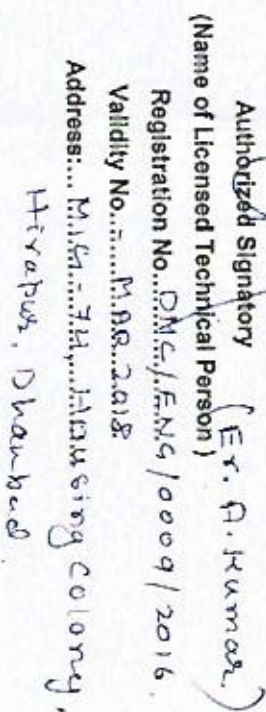 Authorized Signatory
(Er. A. Kumar)
(Name of Licensed Technical Person )
Registration No...DMC/ENG/0009/2016.
Validity No...:...MAR 2018
Address:... M.I.G.-74, Housing Colony,
Hirapur, Dhanbad